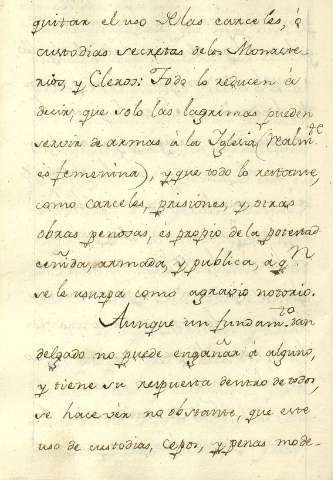 quitar el uso de las carceles, ó
custodias secretas de los Monaste-
rios, y Cleros: Todo lo reducen á
decir, que solo las lagrimas pueden
servir de armas á la Iglesia (realm.te
es femenina), y que todo lo restante,
como carceles, prisiones, y otras
obras penosas, es propio de la potestad
ceñida, armada, y publica, a q.n
se le usurpa como agravio notorio.
Aunque un fundam.to tan
delgado no puede engañar á alguno,
y tiene su respuesta dentro de todos,
se hace vér no obstante, que este
uso de custodias, cepos, y penas mode-